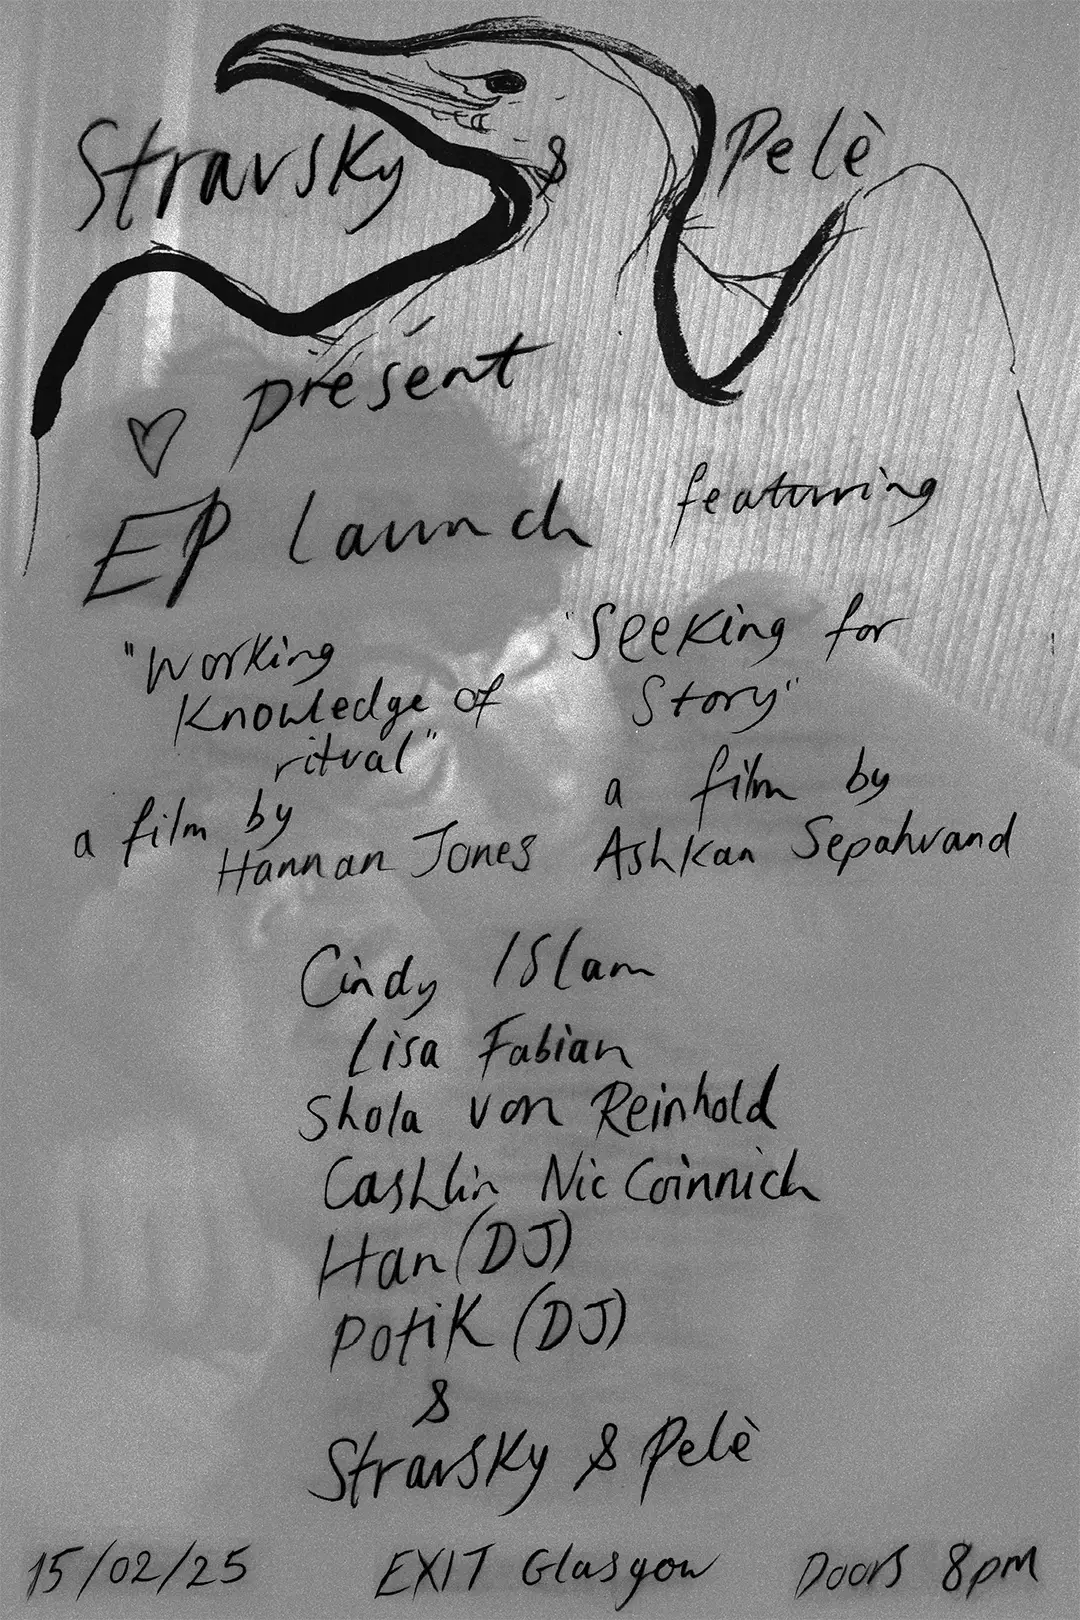 Stravsky & Pelè
present
EP Launch featuring
"Working
Knowledge of
ritual"
a film by
Hannan Jones
"Seeking for
Story"
a film by
Ashkan Sepahvand
Cindy Islam
Lisa Fabian
Shola von Reinhold
Cashlin Nic Coinnich
Han (DJ)
Potik (DJ)
&
Stravsky & Pelè
15/02/25 EXIT Glasgow Doors 8pm